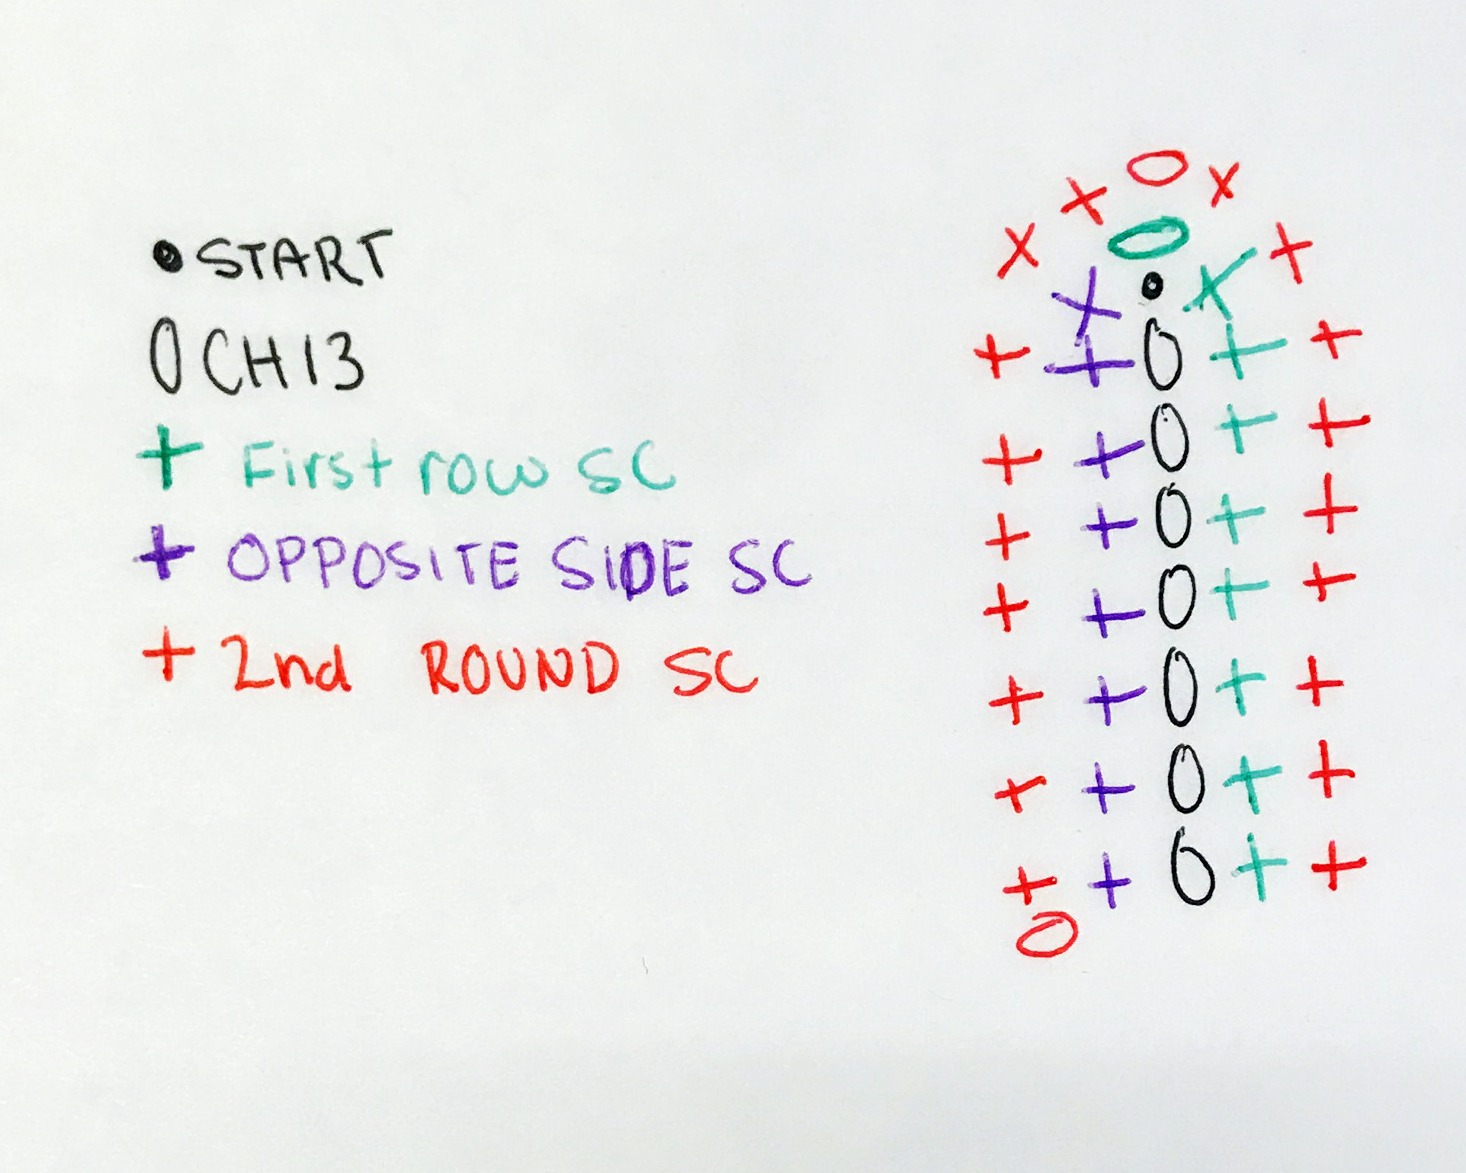 START
CH 13
First row SC
OPPOSITE SIDE SC
2nd ROUND SC